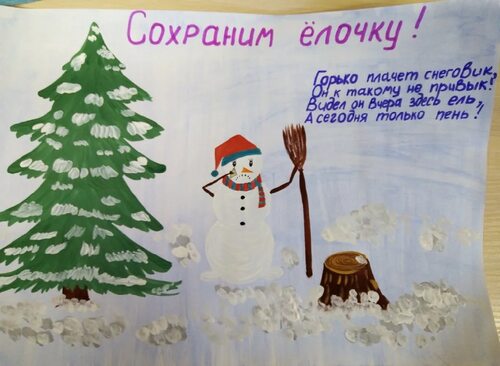 Сохраним ёлочку!
Горько плачет снеговик,
Он к такому не привык!
Видел он вчера здесь ель,
А сегодня только пень!